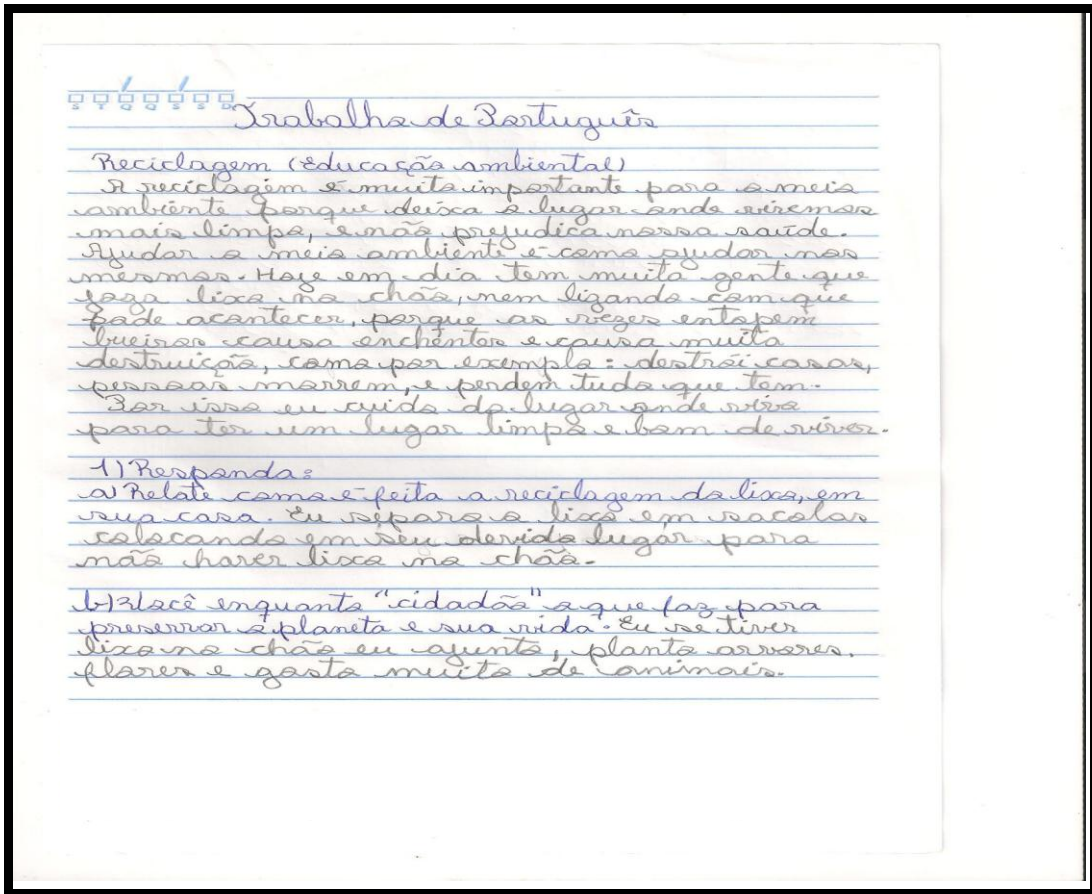 S T Q Q S S D
Trabalho de Português
Reciclagem (Educação ambiental)
A reciclagem é muito importante para o meio
ambiente porque deixa o lugar onde vivemos
mais limpo, e não prejudica nossa saúde.
Ajudar o meio ambiente é como ajudar nos
mesmos. Hoje em dia tem muita gente que
joga lixo no chão, nem ligando com que
pode acontecer, porque as vezes entopem
bueiros causa enchentes e causa muita
destruição, como por exemplo: destrói casas,
pessoas morrem, e perdem tudo que tem.
Por isso eu cuido do lugar onde vivo
para ter um lugar limpo e bom de viver.
1) Responda:
a) Relate como é feita a reciclagem do lixo, em
sua casa. Eu separo o lixo em sacolas
colocando em seu devido lugar para
não haver lixo no chão.
b) Você enquanto "cidadão" o que faz para
preservar o planeta e sua vida. Eu se tiver
lixo no chão eu ajunto, planto arvores.
flores e gosto muito de animais.